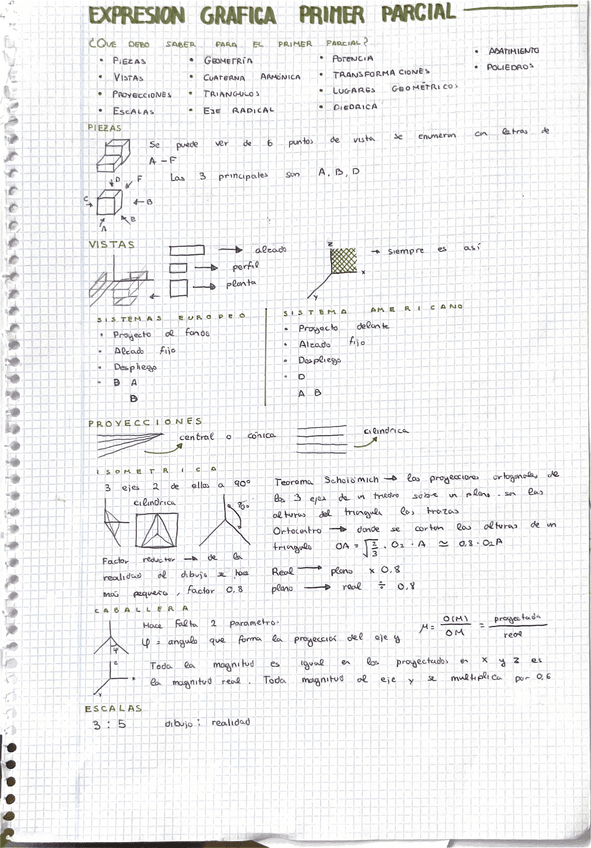 EXPRESION GRAFICA PRIMER PARCIAL
¿QUE DEBO SABER PARA EL PRIMER PARCIAL?
• PIEZAS
• VISTAS
• PROYECCIONES
• ESCALAS
• GEOMETRÍA
• CUATERNA ARMÓNICA
• TRIANGULOS
• EJE RADICAL
• POTENCIA
• TRANSFORMACIONES
• LUGARES GEOMÉTRICOS
• DIEDRICA
• ABATIMIENTO
• POLIEDROS
PIEZAS
Se puede ver de 6 puntos de vista se enumeran con letras de
A - F
Las 3 principales son A, B, D
D F
C B
A E
VISTAS
alzado
perfil
planta
z
x
y
siempre es así
SISTEMAS EUROPEO
• Proyecto al fondo
• Alzado fijo
• Despliego
• B A
B
SISTEMA AMERICANO
• Proyecto delante
• Alzado fijo
• Despliego
• D
A B
PROYECCIONES
central o cónica
cilindrica
ISOMETRICA
3 ejes 2 de ellos a 90º
cilindrica
90º
Factor reductor → de la
realidad al dibujo se hace
mas pequeño, factor 0,8
Teorema → las proyecciones ortogonales de
los 3 ejes de un triedro sobre un plano son las
alturas del triangulo las trazas
Ortocentro → donde se cortan las alturas de un
triangulo OA = √2/3 · O₂ · A ≃ 0,8 · O₂A
Real → plano x 0,8
plano → real ÷ 0,8
CABALLERA
Hace falta 2 parametro.
φ = angulo que forma la proyección del eje y
μ = O(M)/OM = proyectada/real
φ
Toda la magnitud es igual en los proyectados en x y z es
la magnitud real. Toda magnitud al eje y se multiplica por 0,6
z
x
y
ESCALAS
3 : 5 dibujo : realidad